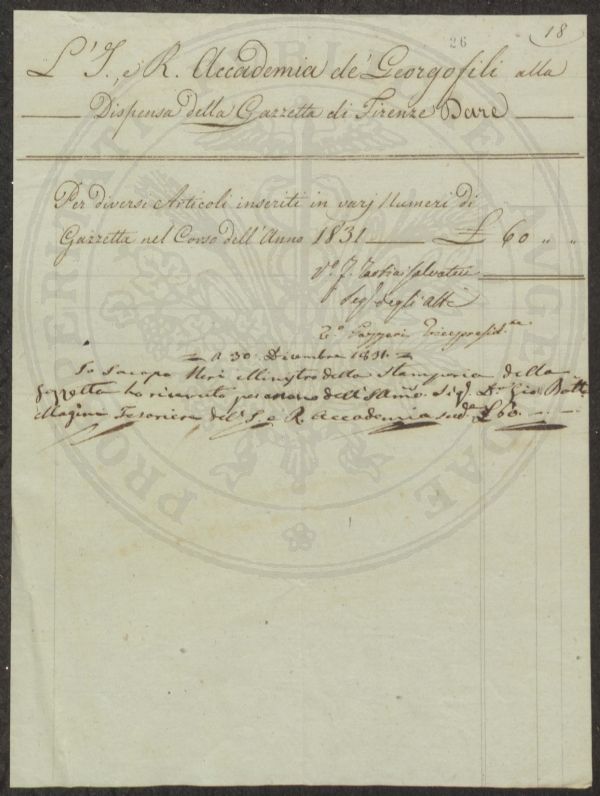 26
18
L'I. e R. Accademia de' Georgofili alla
Dispensa della Gazzetta di Firenze Dare
Per diversi Articoli inseriti in varj Numeri di
Gazzetta nel Corso dell'Anno 1831 £ 60 " "
V.° F. Tartini Salvatici
Seg.° degli atti
V.° Pazzani Vicepresid.te
A 30. Dicembre 1831.
Io Jacopo Neri Ministro della Stamperia della
Gazzetta ho ricevuto per mano dell'Illmo. Sig.
Magini Tesoriere dell'I. e R. Accademia sud.e £ 60.
PROSPERITATI PUBLICAE AUGENDAE